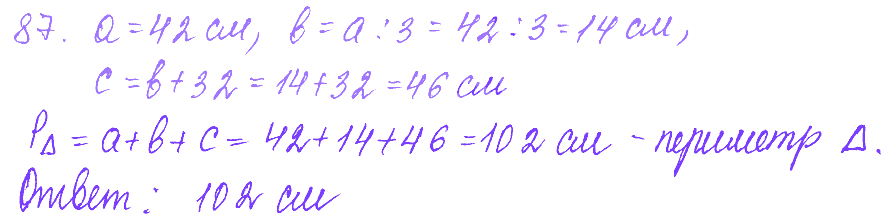 87. a = 42 см, b = a : 3 = 42 : 3 = 14 см,
c = b + 32 = 14 + 32 = 46 см
P∆ = a + b + c = 42 + 14 + 46 = 102 см - периметр ∆.
Ответ: 102 см